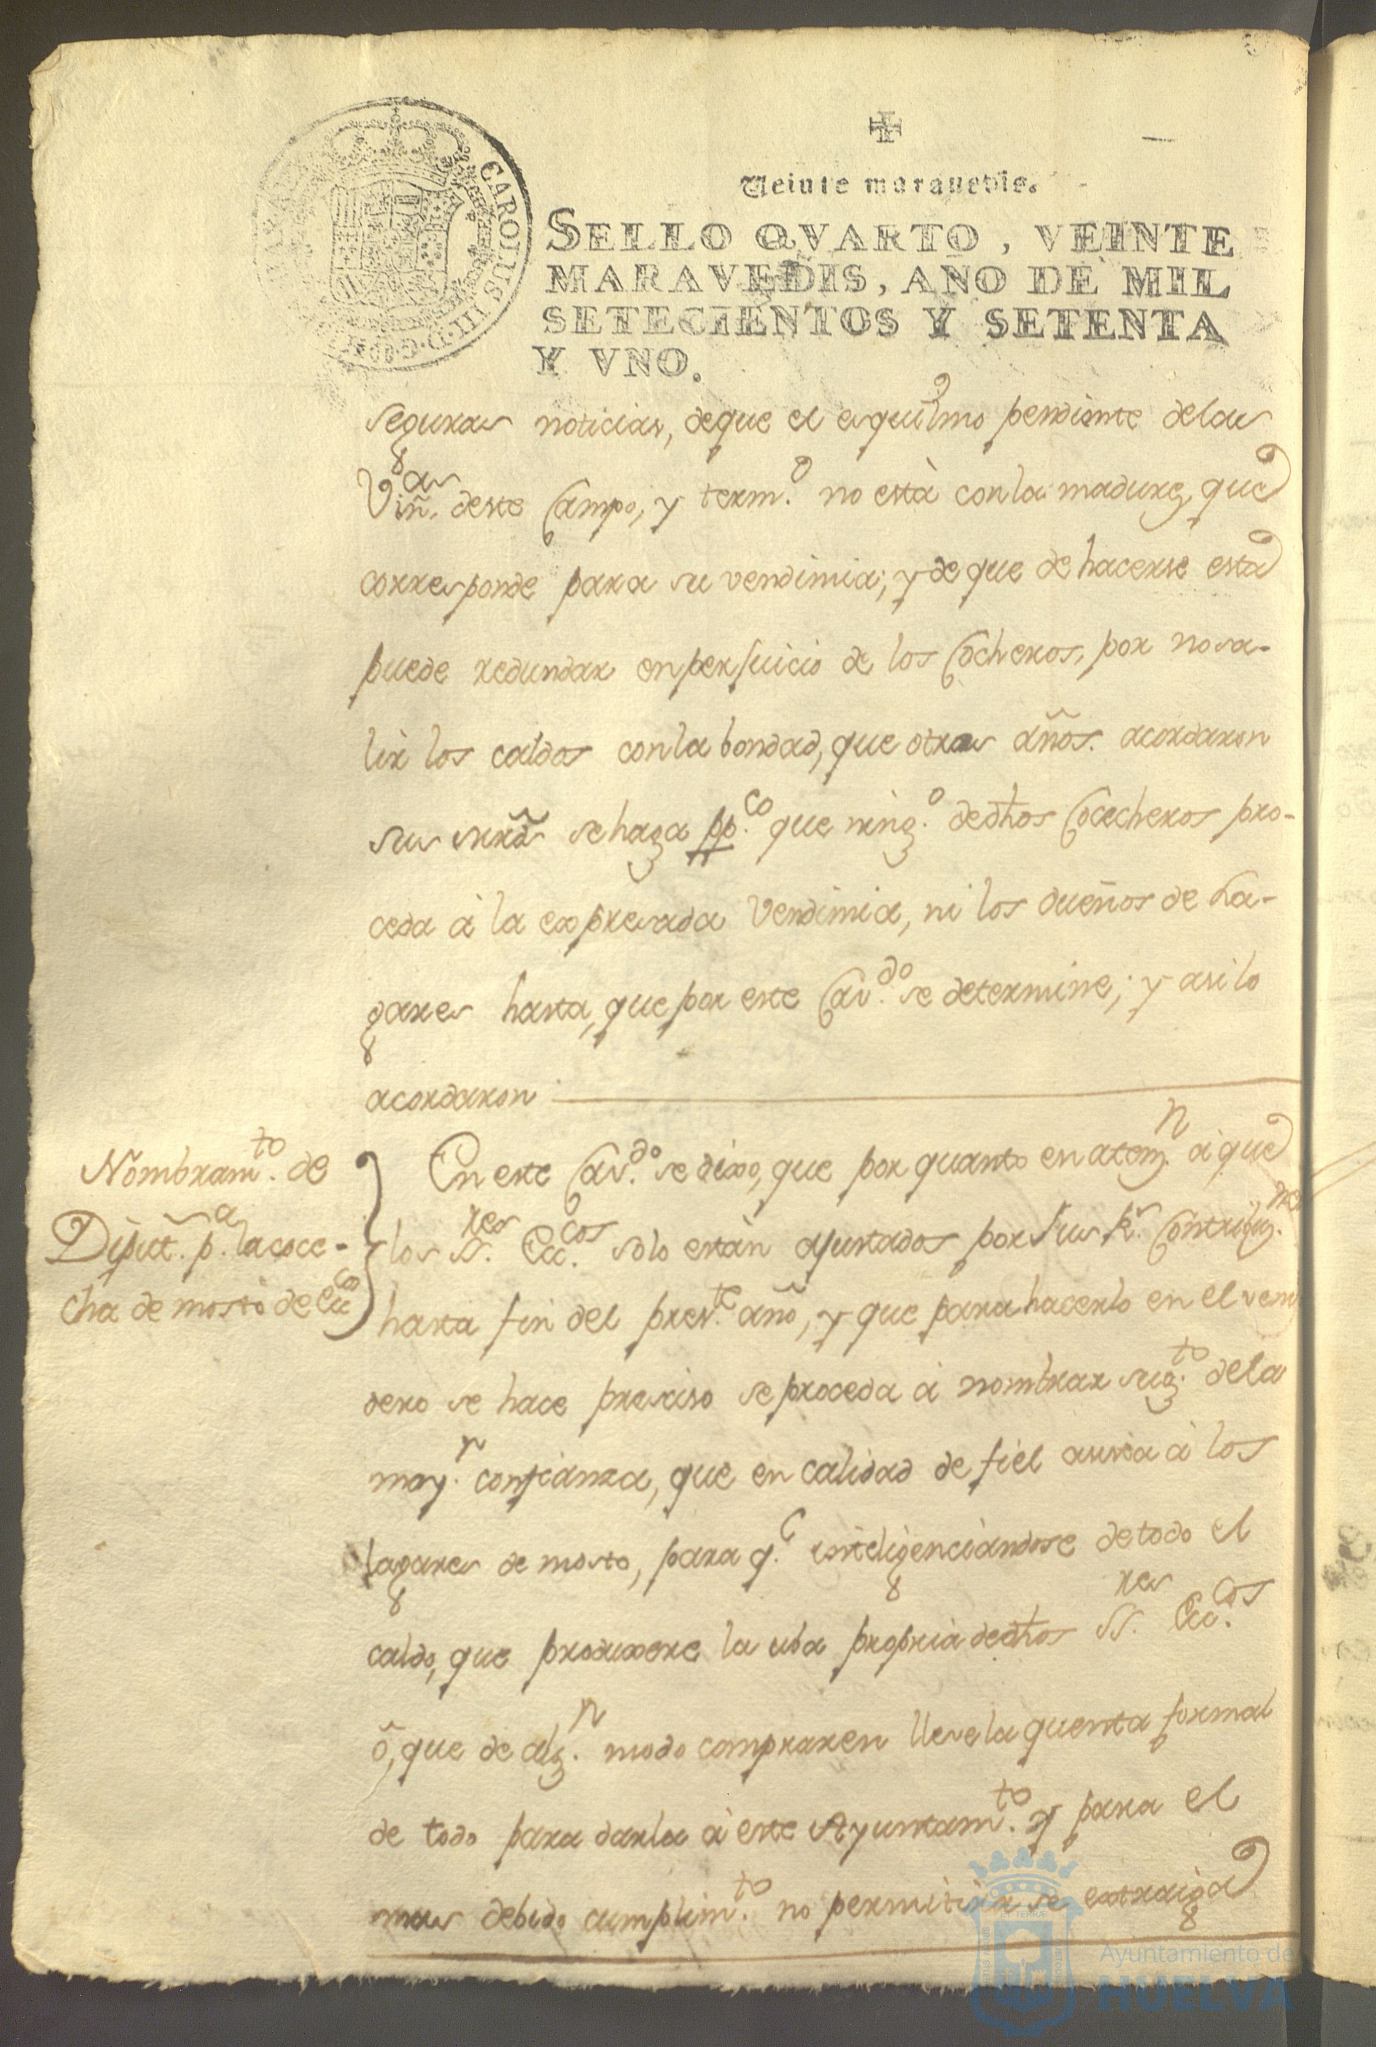 CAROLUS III D. G.
Veinte maravedis.
SELLO QVARTO, VEINTE
MARAVEDIS, AÑO DE MIL
SETECIENTOS Y SETENTA
Y VNO.
seguras noticias, deque el esquilmo pendiente delas
Viñ.as deste Campo, y term.o no està conla madurez, que
corresponde para su vendimia; y de que de hacerse esta
puede redundar en perjuicio de los Cocheros, por nosa-
lir los caldos conla bondad, que otros años. acordaron
sus mrds se haga pp.co que ning.o de dhos Cocecheros pro-
ceda à la expresada Vendimia, ni los dueños de La-
gares hasta, que por este Cav.do se determine; y asi lo
acordaron
Nombram.to de
Diput. p.a la coce-
cha de mosto de Ecc.co
En este Cav.do se dixo, que por quanto en atenz.n à que
los SS.res Ecc.cos solo estàn ajustados por sus R.s Contribuz.nes
hasta fin del pres.te año, y que para hacerlo en el veni
dero se hace presciso se proceda à nombrar sug.to dela
may.r confianza, que en calidad de fiel asista à los
lagares de mosto, para q.e inteligenciandose de todo el
caldo, que produxere la uba propria de dhos SS.res Ecc.cos
ò, que de alg.n modo compraren lleve la quenta formal
de todo para darla à este Ayuntam.to y para el
mas debido cumplim.to no permitirà se extraiga
Ayuntamiento de
HUELVA